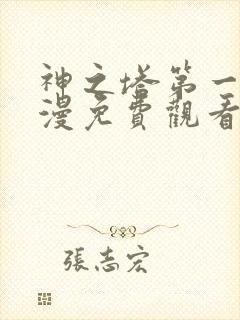 神之塔第一
漫免費觀看
張志宏